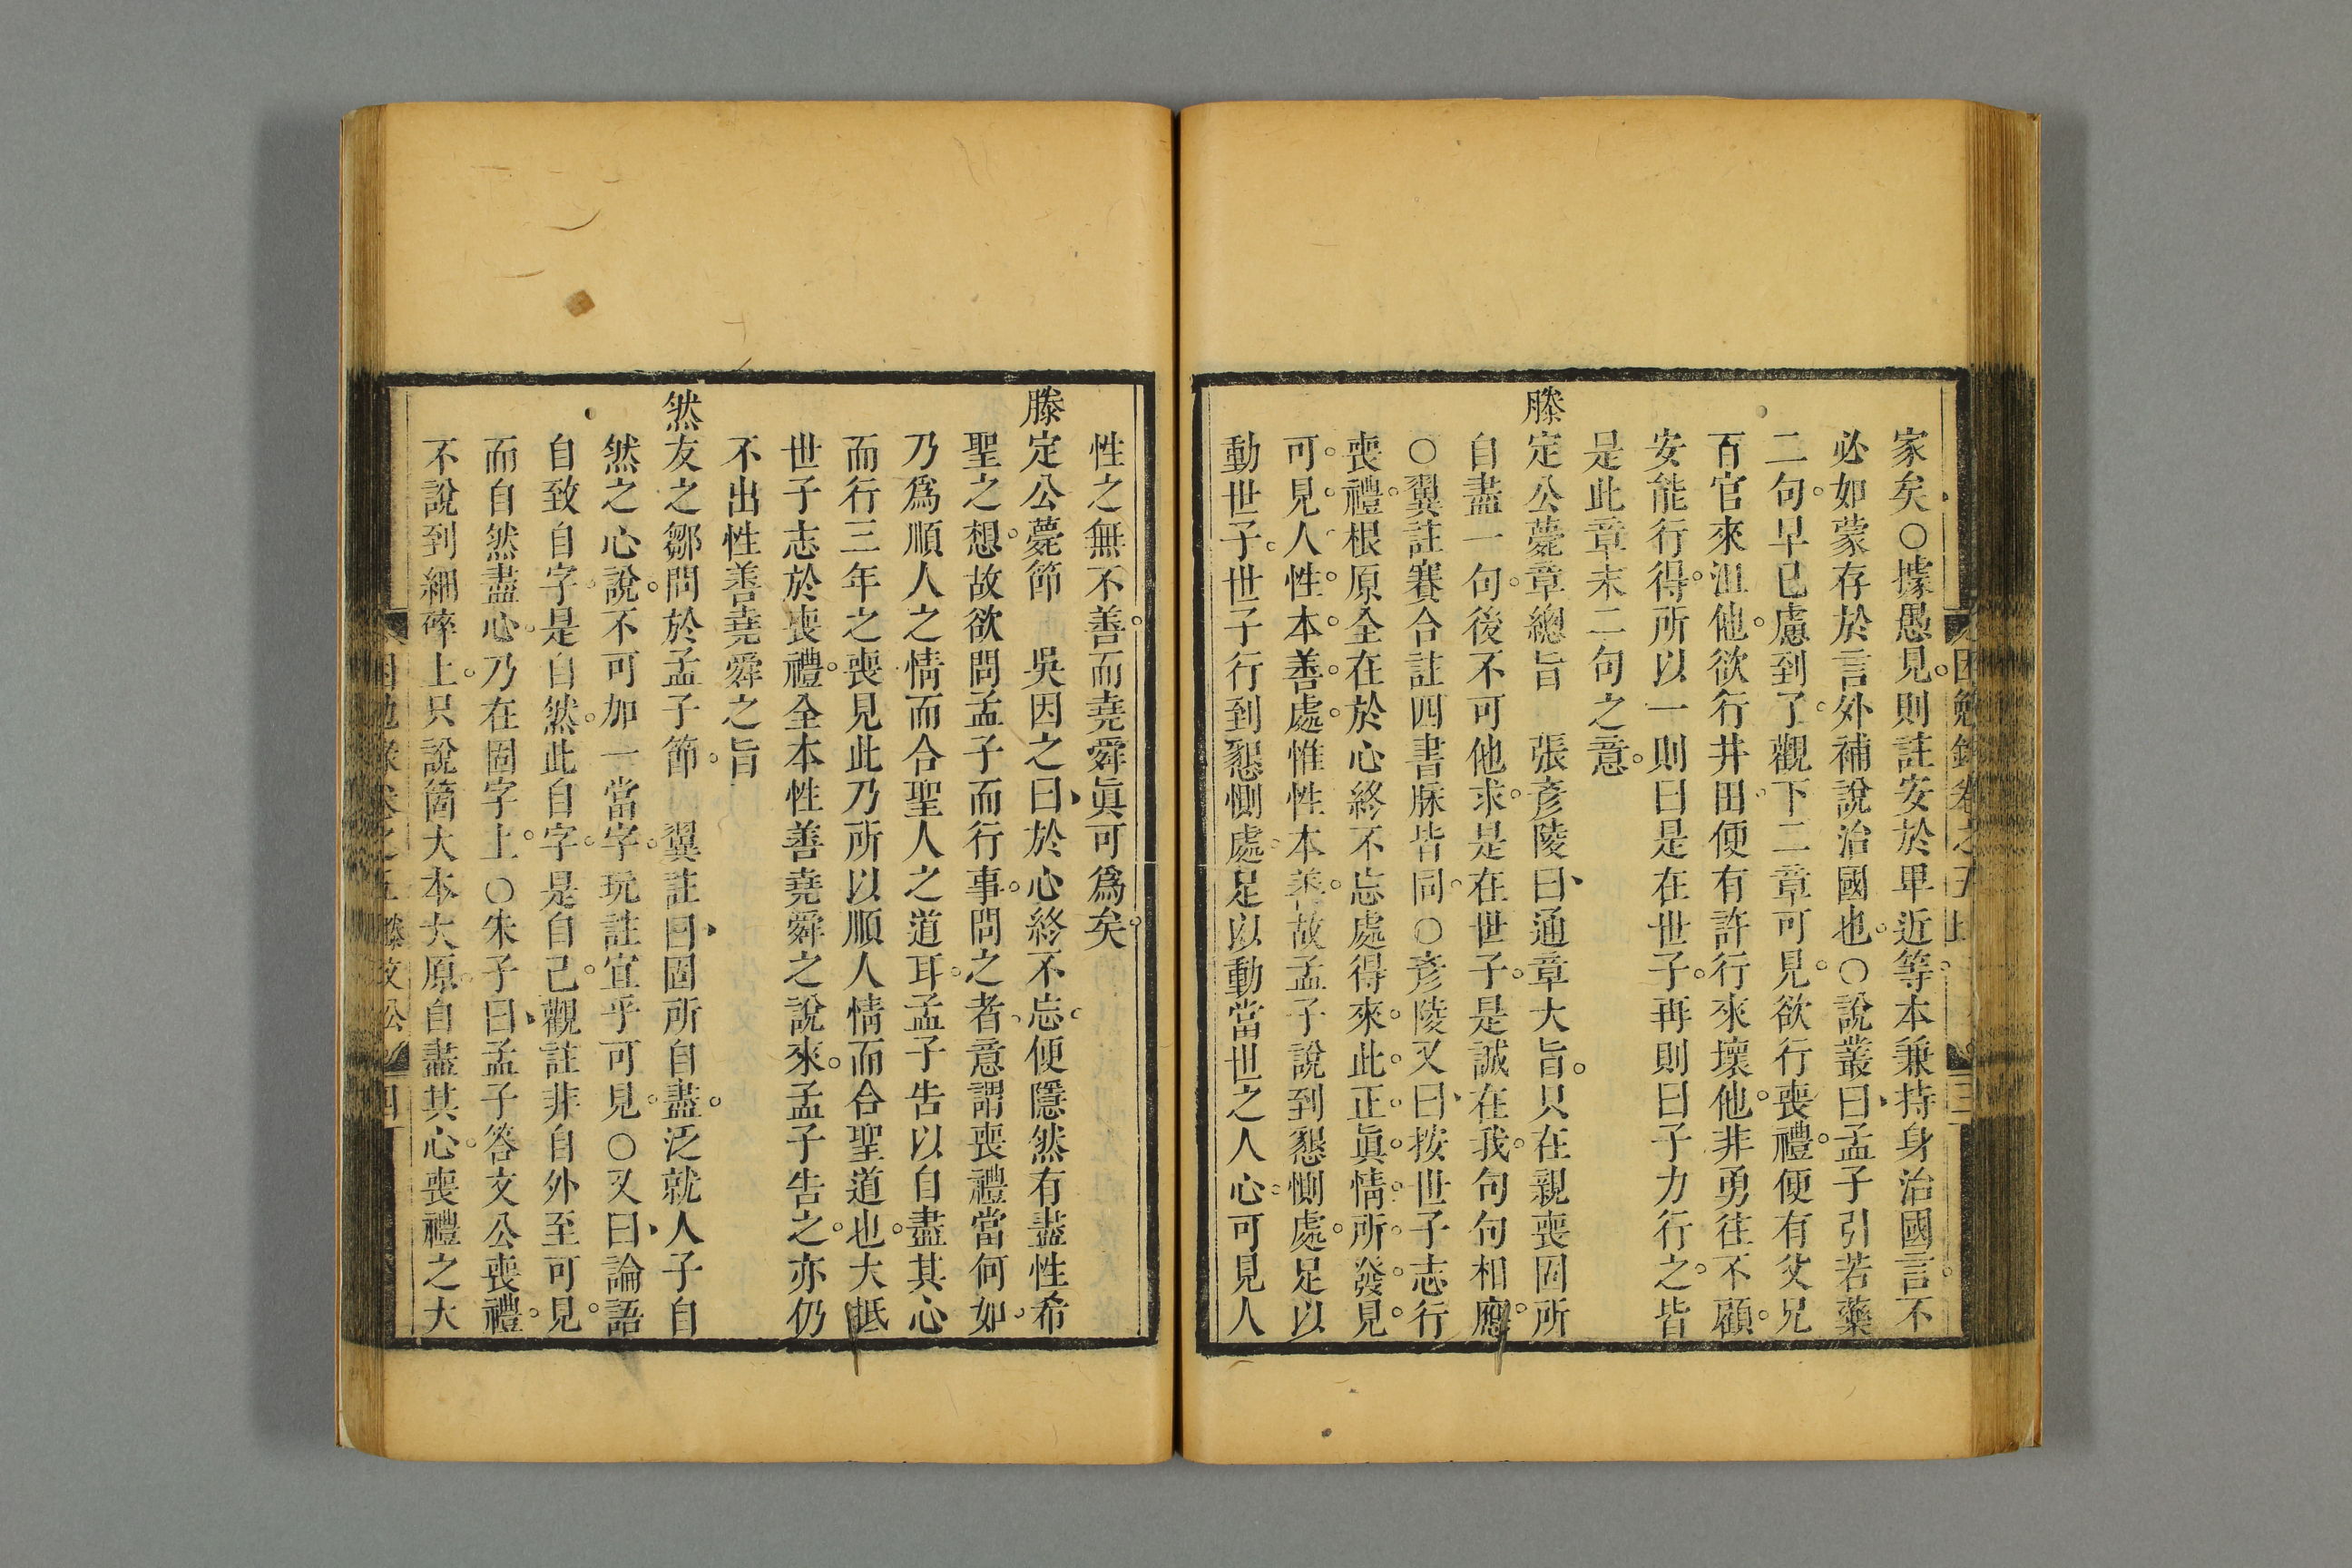 家矣○據愚見則註安於卑近等本兼持身治國言不
必如蒙存於言外補說治國也○說叢曰孟子引若藥
二句早已慮到了觀下二章可見欲行喪禮便有父兄
百官來沮他欲行井田便有許行來壞他非勇往不顧
安能行得所以一則曰是在世子再則曰子力行之皆
是此章末二句之意
滕定公薨章總旨　張彥陵曰通章大旨只在親喪固所
自盡一句後不可他求是在世子是誠在我句句相應
○翼註賽合註四書脈皆同○彥陵又曰按世子志行
喪禮根原全在於心終不忘處得來此正眞情所發見
可見人性本善處惟性本善故孟子說到懇惻處足以
動世子世子行到懇惻處足以動當世之人心可見人
性之無不善而堯舜眞可爲矣
滕定公薨節　吳因之曰於心終不忘便隱然有盡性希
聖之想故欲問孟子而行事問之者意謂喪禮當何如
乃爲順人之情而合聖人之道耳孟子告以自盡其心
而行三年之喪見此乃所以順人情而合聖道也大抵
世子志於喪禮全本性善堯舜之說來孟子告之亦仍
不出性善堯舜之旨
然友之鄒問於孟子節　翼註曰固所自盡泛就人子自
然之心說不可加一當字玩註宜乎可見○又曰論語
自致自字是自然此自字是自己觀註非自外至可見
而自然盡心乃在固字上○朱子曰孟子答文公喪禮
不說到細碎上只說箇大本大原自盡其心喪禮之大